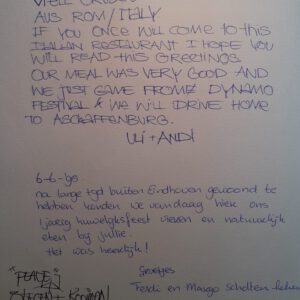 VIELE GRÜSSE
AUS ROM/ITALY
IF YOU ONCE WILL COME TO THIS
ITALIAN RESTAURANT I HOPE YOU
WILL READ THIS GREETINGS
OUR MEAL WAS VERY GOOD AND
WE JUST CAME FROM DYNAMO
FESTIVAL & WE WILL DRIVE HOME
TO ASCHAFFENBURG.
ULI + ANDI
6-6-'98
na lange tijd buiten Eindhoven gewoond te
hebben konden we vandaag hier ons
jarig huwelijksfeest vieren en natuurlijk
eten bij jullie.
Het was heerlijk!
Groetjes
"PEACE"
Ferdi en Margo Scholten
STEFAN +